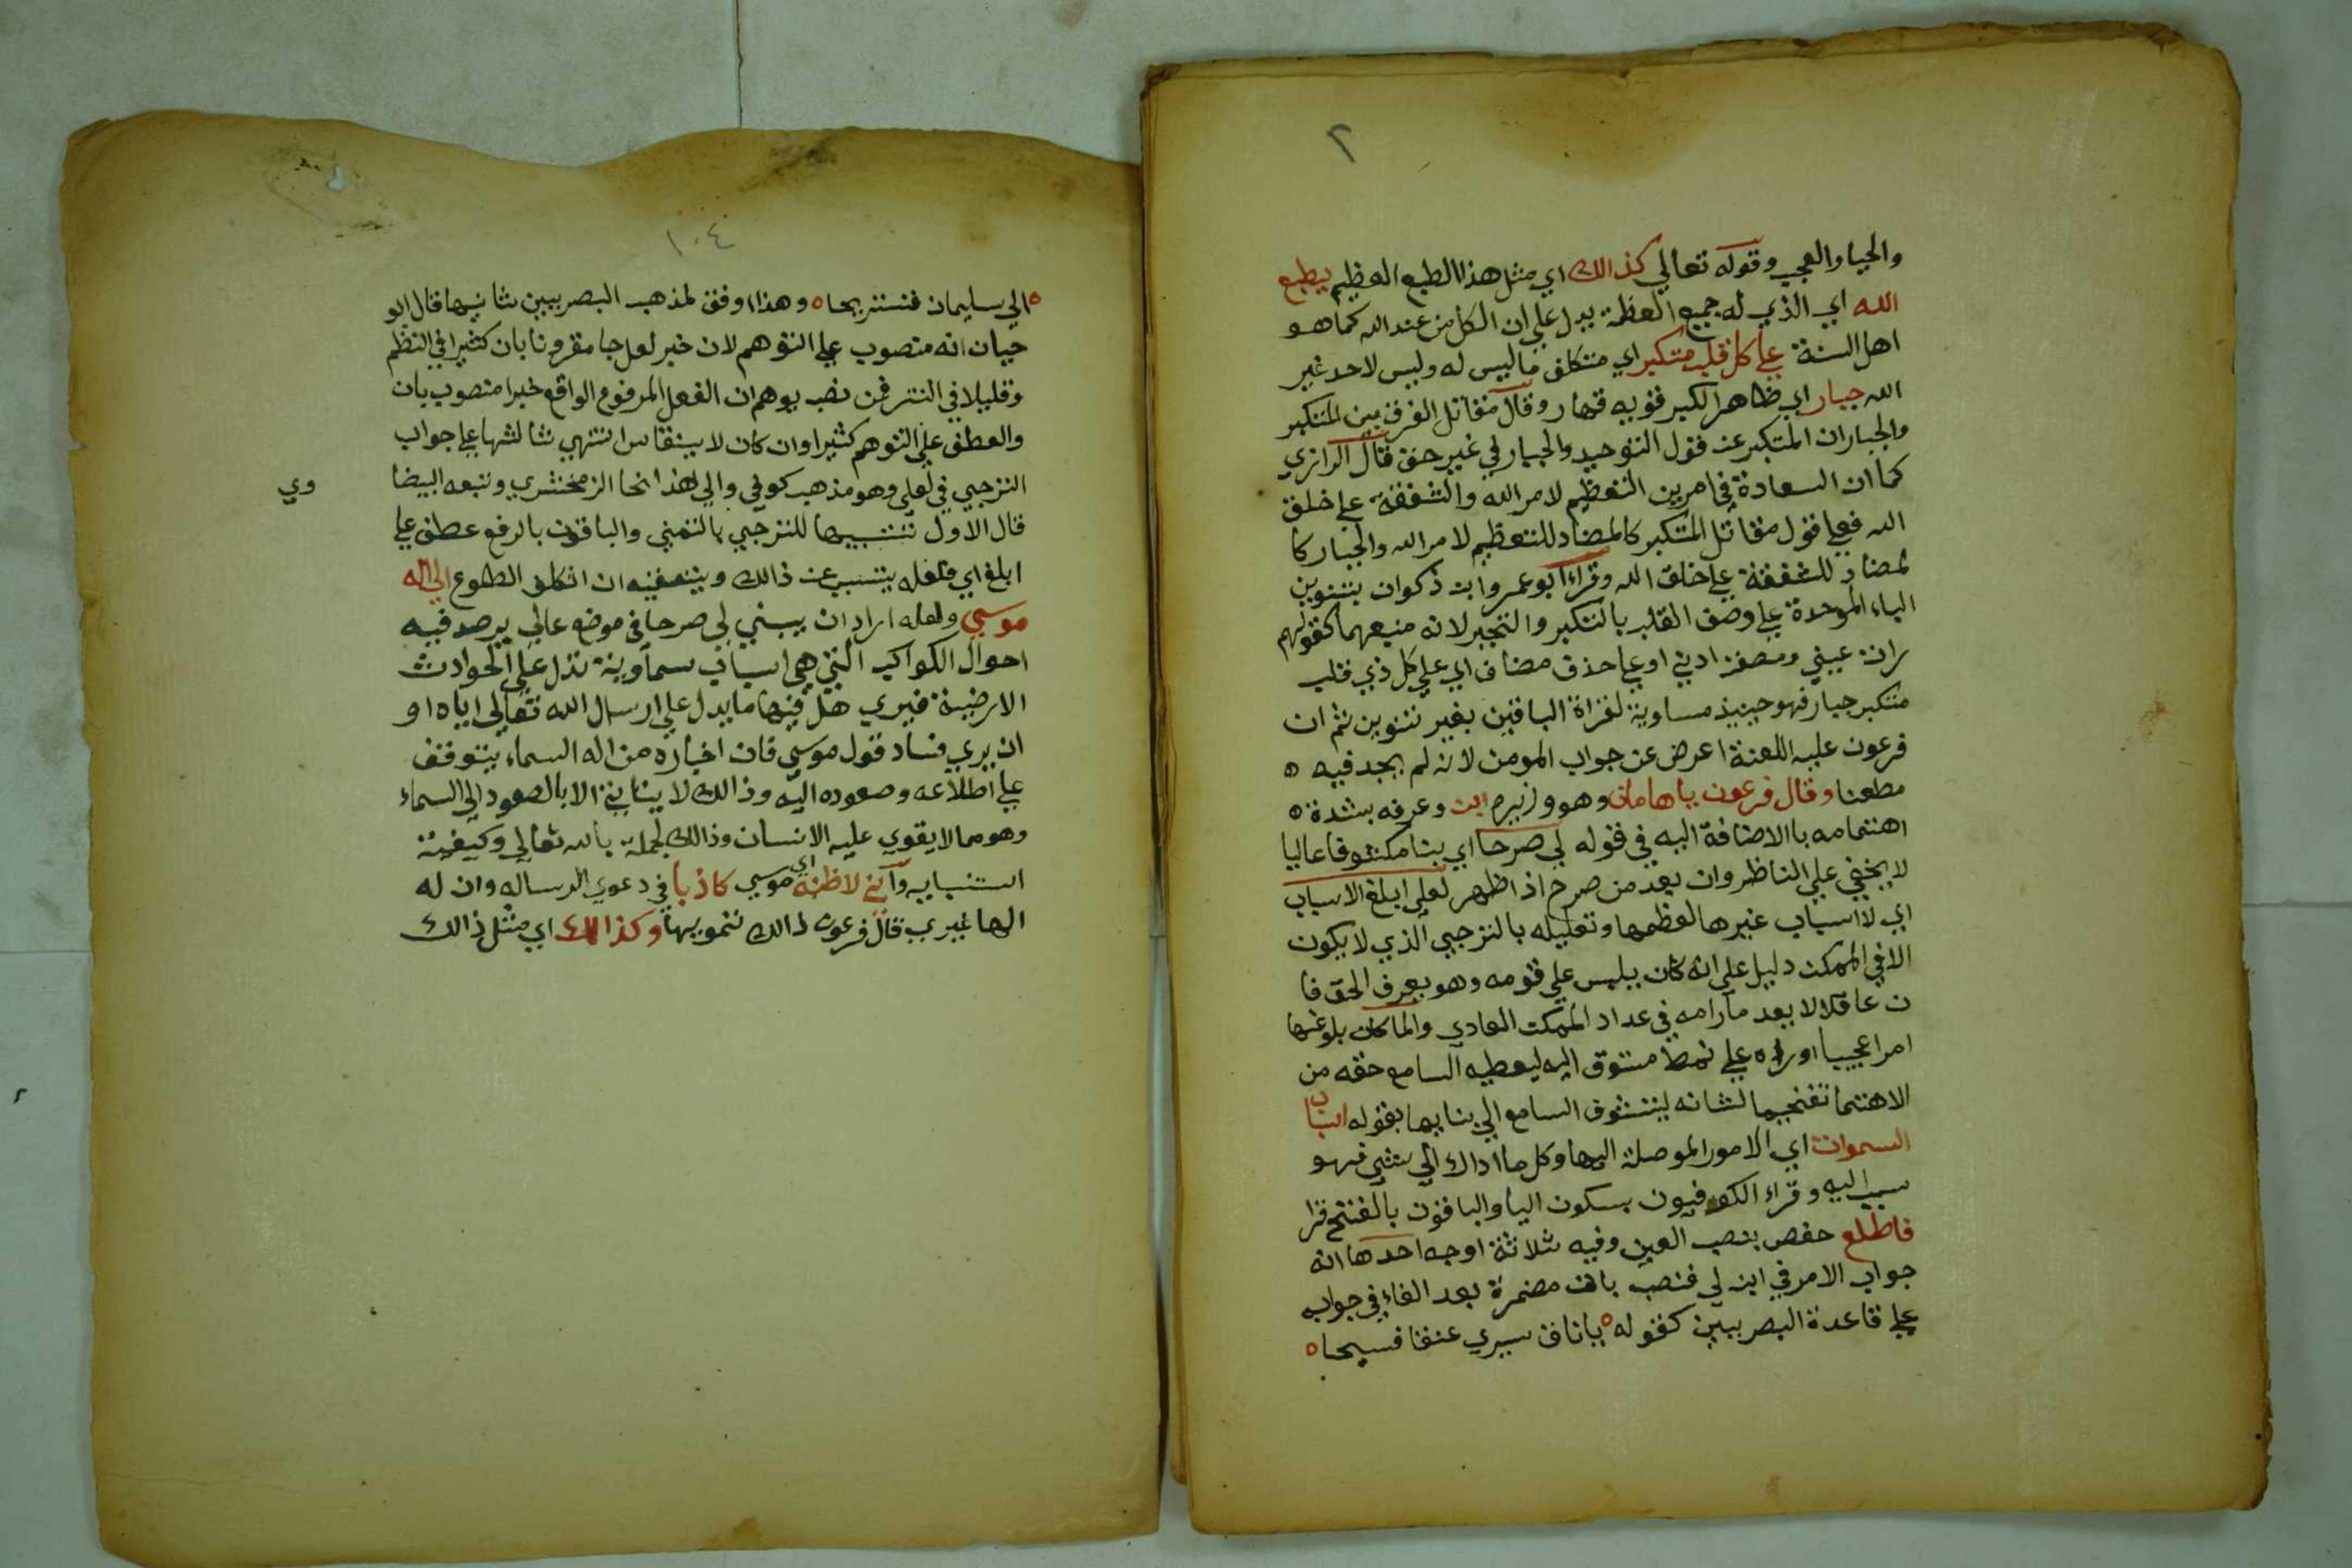 ٢
والجبار العجيب وقوله تعالي كذالك اي مثل هذا الطبع العظيم يطبع
الله اي الذي له جميع العظمة يدل علي ان الكل من عند الله كما هو
اهل السنة علي كل قلب متكبر اي متكلف ما ليس له وليس لاحد غير
الله جبار اي ظاهر الكبر قويه قهار وقال مقاتل الفرق بين المتكبر
والجبار ان المتكبر عن قول التوحيد والجبار في غير حق قال الرازي
كما ان السعادة في امرين التعظيم لامر الله والشفقة علي خلق
الله فعلي قول مقاتل المتكبر كالمضاد للتعظيم لامر الله والجبار كا
لمضاد للشفقة علي خلق الله وقراء ابو عمر وابن ذكوان بتنوين
الباء الموحدة علي وصف القلب بالتكبر والتجبر لانه منبعهما كقولهم
رات عيني وسمعت اذني او علي حذف مضاف اي علي كل ذي قلب
متكبر جبار فهو حينيذ مساوية لقراة الباقين بغير تنوين ثم ان
فرعون عليه اللعنة اعرض عن جواب المومن لانه لم يجد فيه ه
مطعنا وقال فرعون ياهامان وهو وزيره ابن وعرفه بشدة ه
اهتمامه باالاضافة اليه في قوله لي صرحا اي بنا مكشوفا عاليا
لا يخفي علي الناظر وان بعد من صرح اذا ظهر لعلي ابلغ الاسباب
اي لااسباب غيرها لعظمها وتعليله بالترجي الذي لا يكون
الا في الممكن دليل علي انه كان يلبس علي قومه وهو يعرف الحق فا
ن عاقلا لا يعد مارامه في عداد الممكن العادي ولما كان بلوغها
امرا عجيبا اورده علي نمط مشوق اليه ليعطيه السامع حقه من
الاهتما تفخيما لشانه ليتشوف السامع الي بنايها بقوله اسباب
السموات اي الامور الموصلة اليها وكل ما اداك الي شي فهو
سبب اليه وقراء الكوفيون بسكون اليا والباقون بالفتح قرا
فاطلع حفص بنصب العين وفيه ثلاثة اوجه احدها انه
جواب الامر في ابن لي فنصب بان مضمرة بعد الفاء في جوابه
علي قاعدة البصريين كقوله ه ياناق سيري عنقا فسيحا ه
١٠٤
ه الي سليمان فنستريحا ه وهذا اوفق لمذهب البصريين ثانيها قال ابو
حيان انه منصوب علي التوهم لان خبر لعل جا مقرونا بان كثيرا في النظم
وقليلا في النثر فمن نصب يوهم ان الفعل المرفوع الواقع خبرا منصوب بان
والعطف علي التوهم كثيرا وان كان لا ينقاس انتهي ثالثها علي جواب
الترجي في لعل وهو مذهب كوفي والي هذا نحا الزمخشري وتبعه البيضا
وي
قال الاول تشبيها للترجي بالتمني والباقون بالرفع عطف علي
ابلغ اي فلعله يتسبب عن ذالك ويتعقبه ان اتكلف الطلوع الي اله
موسي ولعله اراد ان يبني لي صرحا في موضع عالي يرصد فيه
احوال الكواكب التي هي اسباب سماوية تدل علي الحوادث
الارضية فيري هل فيها ما يدل علي ارسال الله تعالي اياه او
ان يري فساد قول موسي فان اخباره من اله السماء يتوقف
علي اطلاعه وصعوده اليه وذالك لا يتاتي الا بالصعود الي السماء
وهو مما لا يقوي عليه الانسان وذالك لجهله بالله تعالي وكيفية
استنبايه واني لاظنه اي موسي كاذبا في دعوي الرساله وان له
الها غيري قال فرعون ذالك تمويها وكذالك اي مثل ذالك